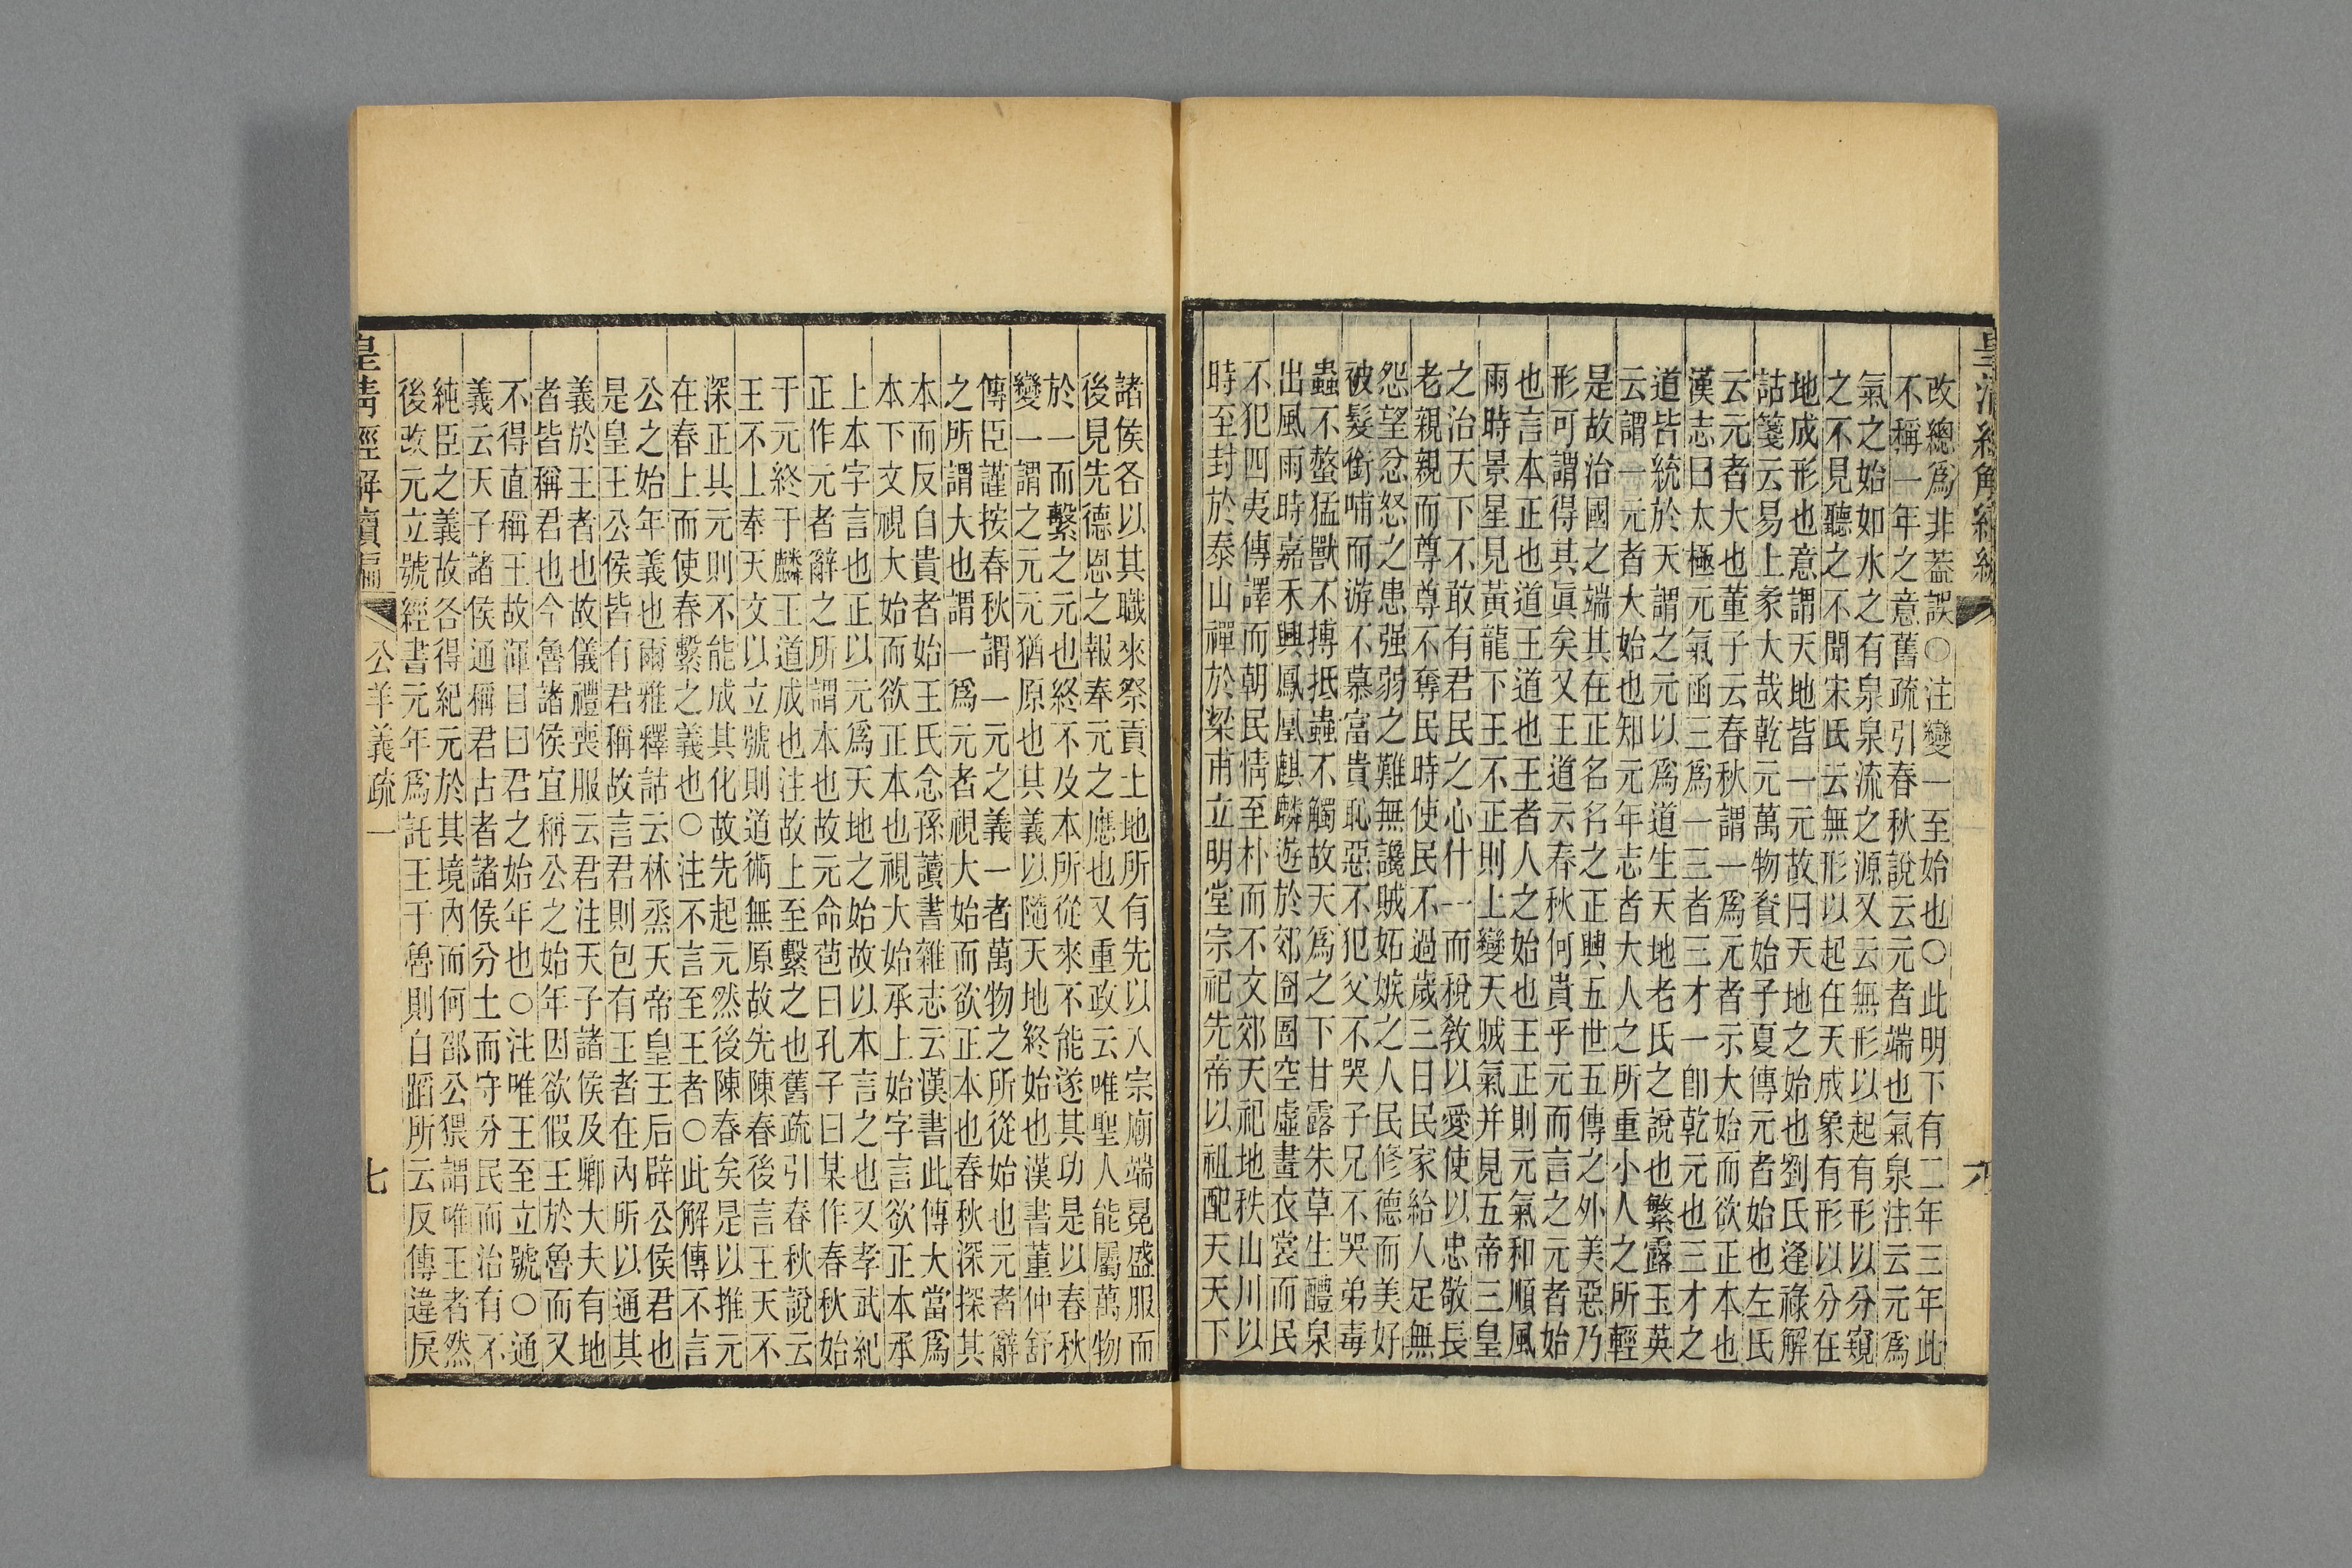 改總爲非蓋誤○注變一至始也○此明下有二年三年此
不稱一年之意舊疏引春秋說云元者端也氣泉注云元爲
氣之始如水之有泉泉流之源又云無形以起有形以分窺
之不見聽之不聞宋氏云無形以起在天成象有形以分在
地成形也意謂天地皆一元故曰天地之始也劉氏逢祿解
詁箋云易上彖大哉乾元萬物資始子夏傳元者始也左氏
云元者大也董子云春秋謂一爲元者示大始而欲正本也
漢志曰太極元氣函三爲一三者三才一卽乾元也三才之
道皆統於天謂之元以爲道生天地老氏之說也繁露玉英
云謂一元者大始也知元年志者大人之所重小人之所輕
是故治國之端其在正名名之正興五世五傳之外美惡乃
形可謂得其眞矣又王道云春秋何貴乎元而言之元者始
也言本正也道王道也王者人之始也王正則元氣和順風
雨時景星見黃龍下王不正則上變天賊氣并見五帝三皇
之治天下不敢有君民之心什一而稅敎以愛使以忠敬長
老親親而尊尊不奪民時使民不過歲三日民家給人足無
怨望忿怒之患强弱之難無讒賊妬嫉之人民修德而美好
被髮銜哺而游不慕富貴恥惡不犯父不哭子兄不哭弟毒
蟲不螫猛獸不搏抵蟲不觸故天爲之下甘露朱草生醴泉
出風雨時嘉禾興鳳凰麒麟遊於郊囹圄空虛畫衣裳而民
不犯四夷傳譯而朝民情至朴而不文郊天祀地秩山川以
時至封於泰山禪於梁甫立明堂宗祀先帝以祖配天天下
諸侯各以其職來祭貢土地所有先以入宗廟端冕盛服而
後見先德恩之報奉元之應也又重政云唯聖人能屬萬物
於一而繫之元也終不及本所從來不能遂其功是以春秋
變一謂之元元猶原也其義以隨天地終始也漢書董仲舒
傳臣謹按春秋謂一元之義一者萬物之所從始也元者辭
之所謂大也謂一爲元者視大始而欲正本也春秋深探其
本而反自貴者始王氏念孫讀書雜志云漢書此傳大當爲
本下文視大始而欲正本也視大始承上始字言欲正本承
上本字言也正以元爲天地之始故以本言之也又孝武紀
正作元者辭之所謂本也故元命苞曰孔子曰某作春秋始
于元終于麟王道成也注故上至繫之也舊疏引春秋說云
王不上奉天文以立號則道術無原故先陳春後言王天不
深正其元則不能成其化故先起元然後陳春矣是以推元
在春上而使春繫之義也○注不言至王者○此解傳不言
公之始年義也爾雅釋詁云林烝天帝皇王后辟公侯君也
是皇王公侯皆有君稱故言君則包有王者在內所以通其
義於王者也故儀禮喪服云君注天子諸侯及卿大夫有地
者皆稱君也今魯諸侯宜稱公之始年因欲假王於魯而又
不得直稱王故渾目曰君之始年也○注唯王至立號○通
義云天子諸侯通稱君古者諸侯分土而守分民而治有不
純臣之義故各得紀元於其境內而何邵公猥謂唯王者然
後改元立號經書元年爲託王于魯則自蹈所云反傳違戾
公羊義疏一
七